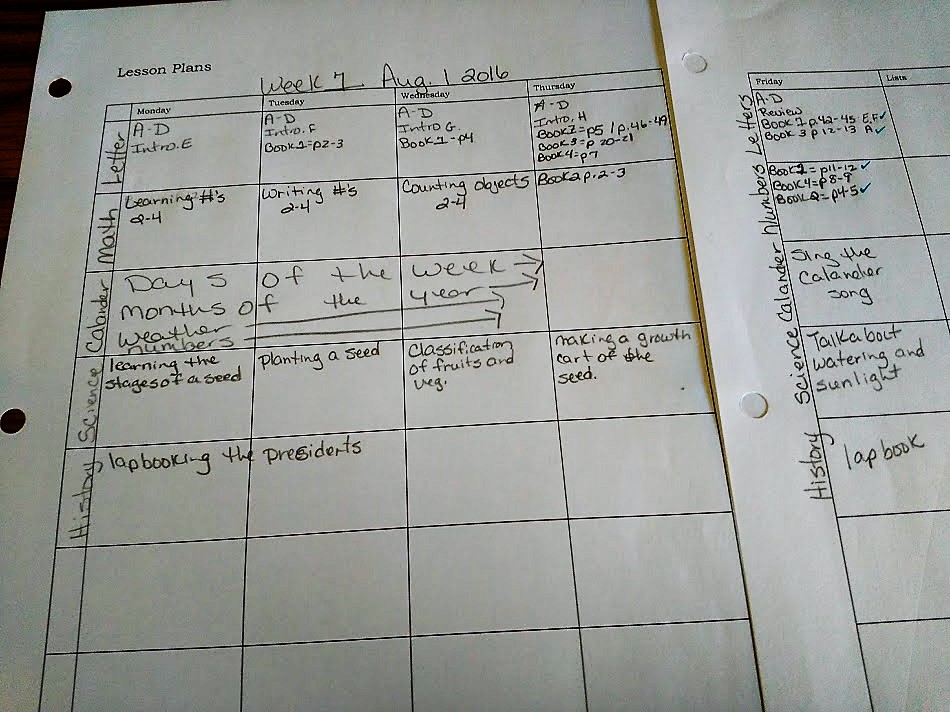 Lesson Plans
Week 7 Aug. 1 2016
Monday
Tuesday
Wednesday
Thursday
Letter
A-D
Intro. E
A-D
Intro. F
Book 1=p2-3
A-D
Intro G.
Book 1-p4
A-D
Intro. H
Book 1=p5 / p.46-49
Book 3=p 20-21
Book 4=p7
Math
Learning #'s
2-4
Writing #'s
2-4
Counting objects
2-4
Book 2 p. 2-3
Calander
Days of the week →
months of the year →
weather
numbers
Science
learning the
stages of a seed
planting a seed
Classification
of fruits and
veg.
making a growth
cart of the
seed.
History
lapbooking the presidents
Friday
Lists
Letters
A-D
Review
Book 1 p.42-45 E,F✓
Book 3 p 12-13 A✓
Numbers
p11-12 ✓
Book 4=p8-9
Book 2=p4-5✓
Calander
Sing the
Calander
song
Science
Talk about
watering and
sunlight
History
lapbook